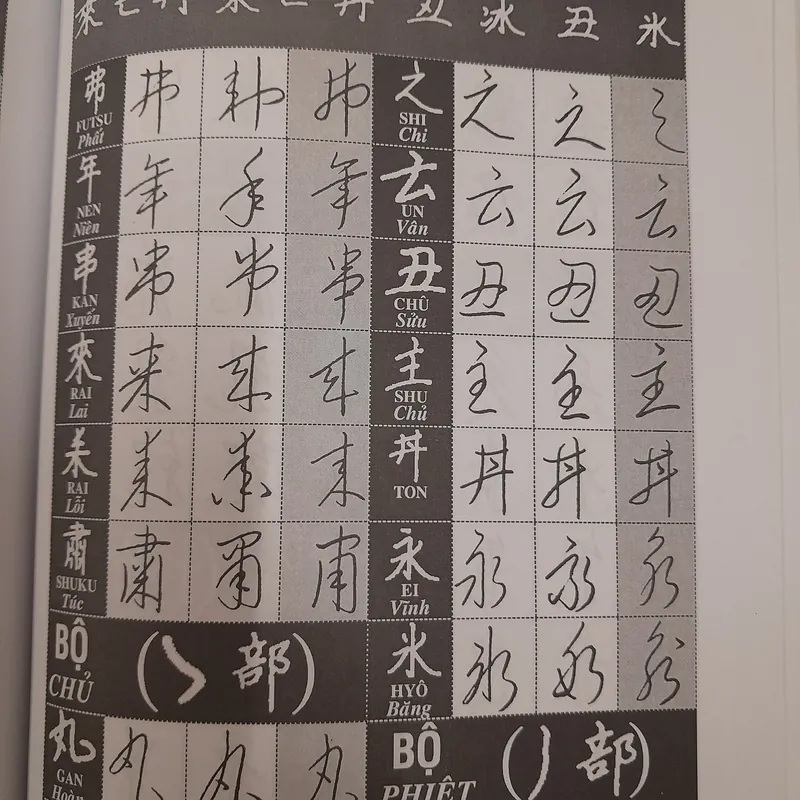 弗 FUTSU Phất 弗 弗 弗
年 NEN Niên 年 年 年
串 KAN Xuyến 串 串 串
來 RAI Lai 来 来 来
耒 RAI Lôi 耒 耒 耒
肅 SHUKU Túc 肅 肅 肅
BỘ CHỦ (丶 部)
丸 GAN Hoàn 丸 丸 丸
之 SHI Chi 之 之 之
云 UN Vân 云 云 云
丑 CHÛ Sửu 丑 丑 丑
主 SHU Chủ 主 主 主
丼 TON 丼 丼 丼
永 EI Vĩnh 永 永 永
氷 HYÔ Băng 氷 氷 氷
BỘ PHIỆT (丿 部)